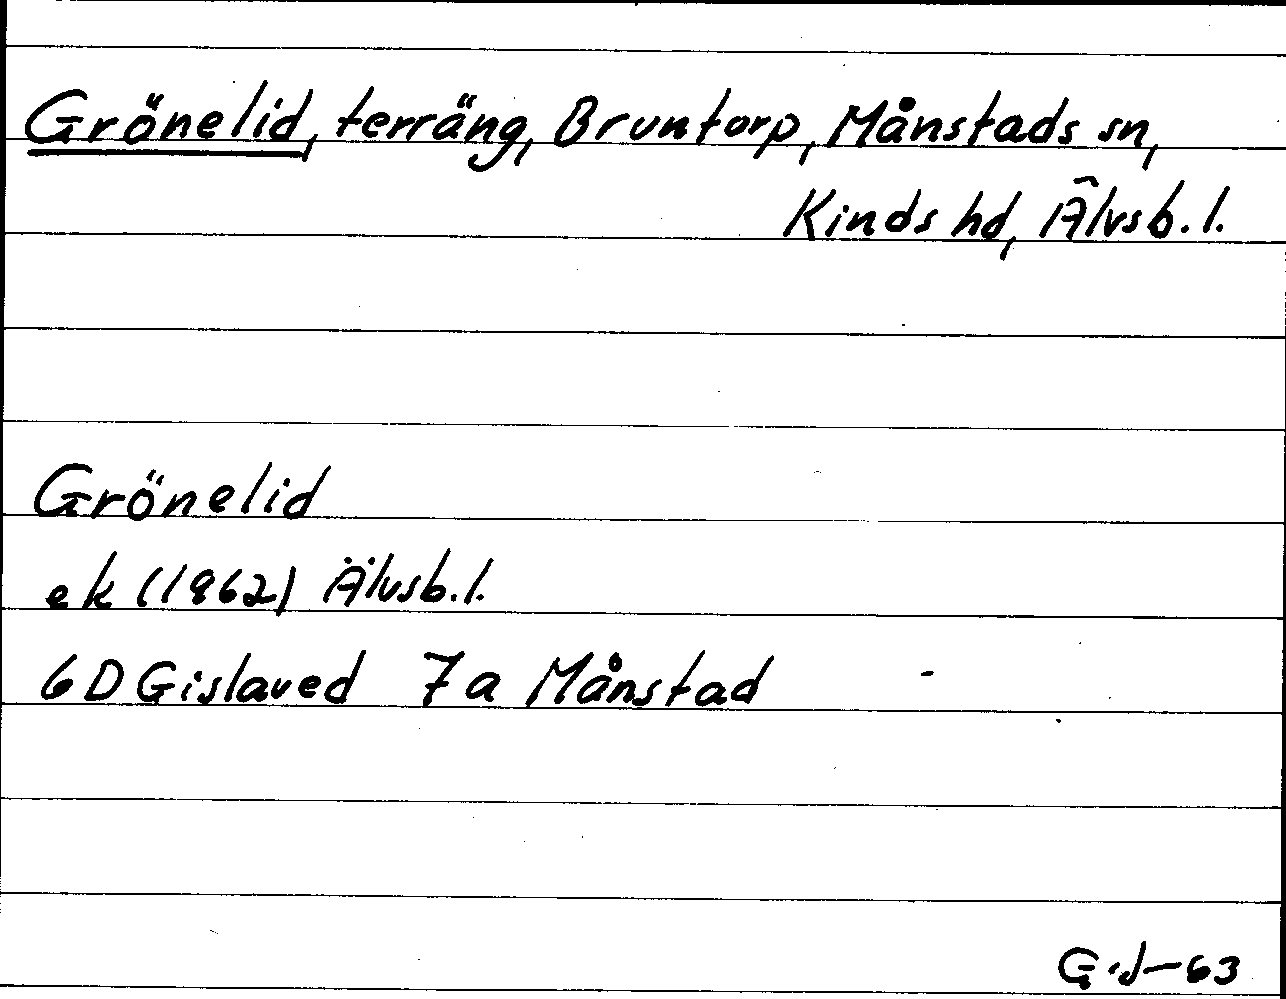 Grönelid, terräng, Bruntorp, Månstads sn,
Kinds hd, Älvsb. l.
Grönelid
ek (1962) Älvsb. l.
6D Gislaved 7a Månstad -
G.J-63